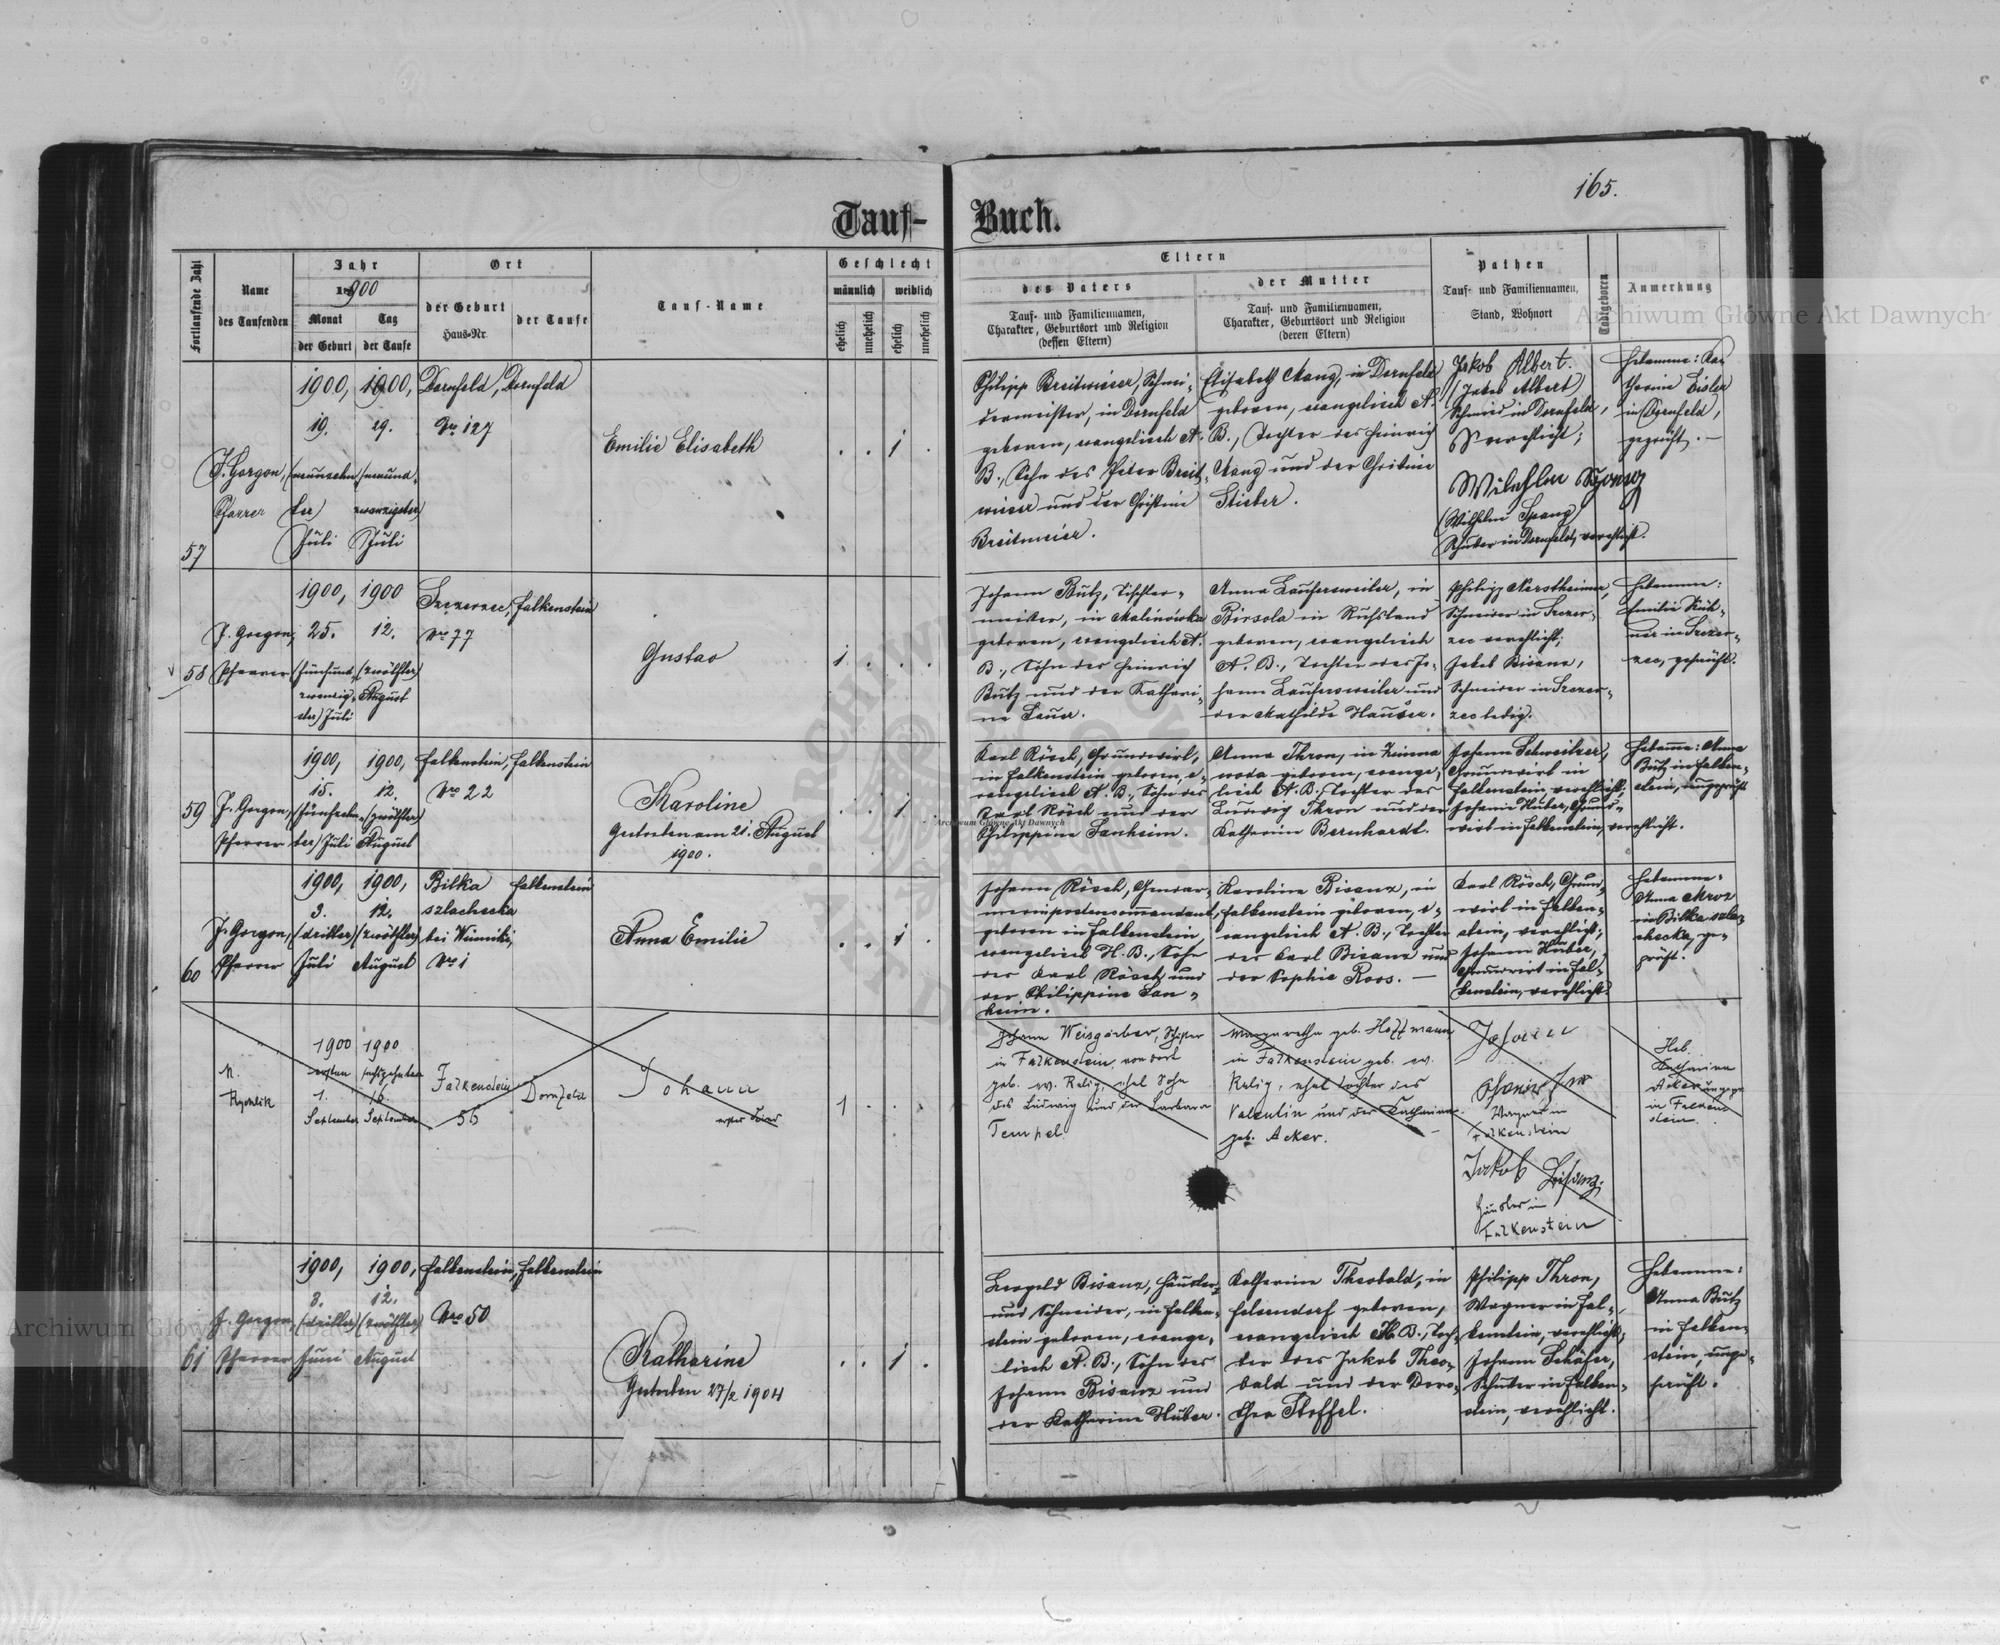 165.
Tauf-
Buch.
Fortlaufende Zahl
Name
des Taufenden
Jahr
1900
Monat
der Geburt
Tag
der Taufe
Ort
der Geburt
Haus-Nr.
der Taufe
Tauf-Name
Geschlecht
männlich
weiblich
ehelich
unehelich
ehelich
unehelich
Eltern
des Vaters
Tauf- und Familiennamen,
Charakter, Geburtsort und Religion
(dessen Eltern)
der Mutter
Tauf- und Familiennamen,
Charakter, Geburtsort und Religion
(deren Eltern)
Pathen
Tauf- und Familiennamen,
Stand, Wohnort
Todtgeboren
Anmerkung
57
J. Gorgon,
Pfarrer
1900,
19.
(neunzehn
ter)
Juli
1900,
29.
(neunund
zwanzigster)
Juli
Dornfeld,
Nr. 127
Dornfeld
Emilie Elisabeth
1
Philipp Breitmeier, Schmi-
demeister, in Dornfeld
geboren, evangelisch A.
B., Sohn des Peter Breit-
meier und der Christine
Breitmeier.
Elisabeth Mang, in Dornfeld
geboren, evangelisch A.
B., Tochter des Heinrich
Mang und der Christine
Stieber.
Jakob Albert.
(Jakob Albert)
Schmied in Dornfeld,
verehlicht;
Wilhelm Spang
(Wilhelm Spang)
Schuster in Dornfeld, verehlicht.
Hebamme: Ka-
tharine Eisler
in Dornfeld,
geprüft.
58
J. Gorgon,
Pfarrer
1900,
25.
(fünfund-
zwanzig-
ster) Juli
1900
12.
(zwölfter)
August
Szczerzec,
Nr. 77
Falkenstein
Gustav
1
Johann Butz, Tischler-
meister, in Malinówka
geboren, evangelisch A.
B., Sohn des Heinrich
Butz und der Kathari-
ne Bauer.
Anna Laufersweiler, in
Birsola in Russland
geboren, evangelisch
A. B., Tochter des Jo-
hann Laufersweiler und
der Mathilde Hauser.
Schneider in Szczer-
zec verehlicht;
Jakob Bisanz,
Schneider in Szczer-
zec ledig.
Hebamme:
Emilie
in Szczer-
zec, geprüft.
59
J. Gorgon,
Pfarrer
1900,
15.
(fünfzehn-
ter) Juli
1900,
12.
(zwölfter)
August
Falkenstein,
Nro 22
Falkenstein
Karoline
Gestorben am 21. August
1900.
1
Karl Rösch, Grundwirt,
in Falkenstein geboren, e-
vangelisch A. B., Sohn des
Karl Rösch und der
Philippine Sanheim.
Anna Thron, in Zimna
woda geboren, evange-
lisch A. B., Tochter des
Ludwig Thron und der
Katharine Bernhardt.
Johann Schweitzer,
Grundwirt in
Falkenstein, verehlicht;
Johann Huber, Grund-
wirt in Falkenstein, verehlicht.
Hebamme: Anna
Butz in Falken-
stein, ungeprüft
60
J. Gorgon,
Pfarrer
1900,
3.
(dritter)
Juli
1900,
12.
(zwölfter)
August
Bilka
szlachecka
bei Winniki,
Nro 1
Falkenstein
Anna Emilie
1
Johann Rösch, Gendar-
merieposten commandant,
geboren in Falkenstein
evangelisch H. B., Sohn
des Karl Rösch und
der Philippine San-
heim.
Karoline Bisanz, in
Falkenstein geboren, e-
vangelisch A. B., Tochter
des Karl Bisanz und
der Sophie Roos.
Karl Rösch, Grund-
wirt in Falken-
stein, verehlicht;
Johann Huber,
Grundwirt in Fal-
kenstein, verehlicht.
Hebamme:
Anna Mroz
in Bilka szla-
checka, ge-
prüft.
1900
ersten
1.
September
1900
sechszehnten
16
September
Falkenstein
56
Dornfeld
Johann
1
Johann Weisgerber,
in Falkenstein, von dort
geb. ev. Relig, ehel Sohn
des Ludwig und der Barbara
Tempel.
Margaretha geb. Hoffmann
in Falkenstein geb. ev.
Relig, ehel Tochter des
Valentin und der Katharina
geb. Acker.
Johann
Wagner in
Falkenstein
Jakob Bisanz;
Häusler in
Falkenstein
Heb.
Katharina
Acker
in Falken
stein.
61
J. Gorgon,
Pfarrer
1900,
3.
(dritter)
Juni
1900,
12.
(zwölfter)
August
Falkenstein,
Nro 50
Falkenstein
Katharine
Gestorben 27/2 1904
1
Leopold Bisanz, Häusler
und Schneider, in Falken-
stein geboren, evange-
lisch A. B., Sohn des
Johann Bisanz und
der Katharine Huber.
Katharine Theobald, in
Felsendorf geboren,
evangelisch H. B., Toch-
ter des Jakob Theo-
bald und der Doro-
thea Stoffel.
Philipp Thron,
Wagner in Fal-
kenstein, verehlicht;
Johann Schäfer,
Schuster in Falken-
stein, verehlicht.
Hebamme:
Anna Butz
in Falken-
stein, unge-
prüft.
Archiwum Główne Akt Dawnych
Archiwum Główne Akt Dawnych
Archiwum Główne Akt Dawnych